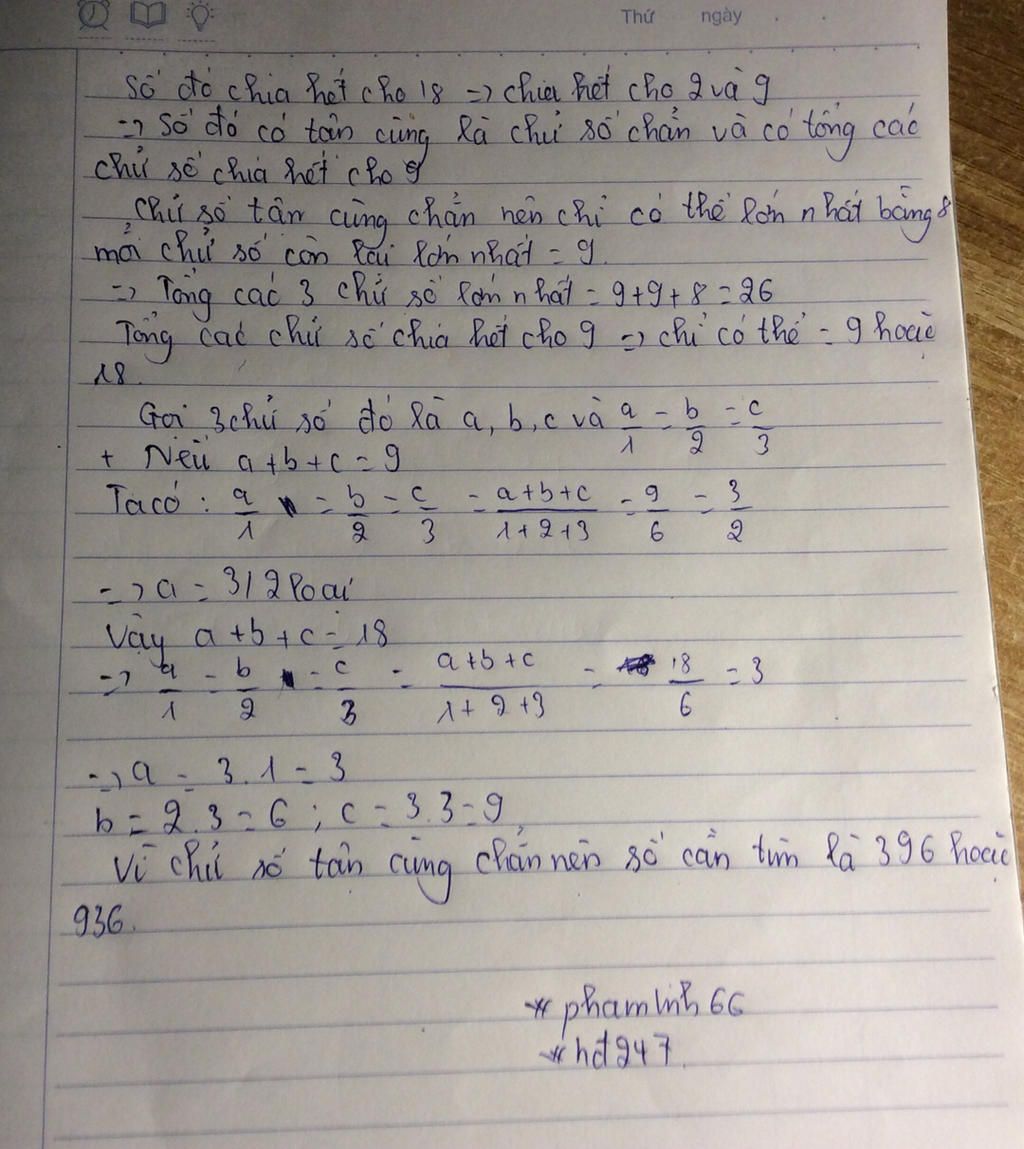 Thứ ngày . .
Số đó chia hết cho 18 => chia hết cho 2 và 9
=> Số đó có tận cùng là chữ số chẵn và có tổng các
chữ số chia hết cho 9
Chữ số tận cùng chẵn nên chỉ có thể lớn nhất bằng 8
mỗi chữ số còn lại lớn nhất = 9.
=> Tổng các 3 chữ số lớn nhất = 9+9+8=26
Tổng các chữ số chia hết cho 9 => chỉ có thể = 9 hoặc
18.
Gọi 3 chữ số đó là a, b, c và a/1 = b/2 = c/3
+ Nếu a+b+c=9
Ta có : a/1 = b/2 = c/3 = (a+b+c)/(1+2+3) = 9/6 = 3/2
=> a = 3/2 loại
Vậy a+b+c=18
=> a/1 = b/2 = c/3 = (a+b+c)/(1+2+3) = 18/6 = 3
=> a = 3.1 = 3
b = 2.3 = 6 ; c = 3.3 = 9
Vì chữ số tận cùng chẵn nên số cần tìm là 396 hoặc
936.
* phamlinh66
* hd247